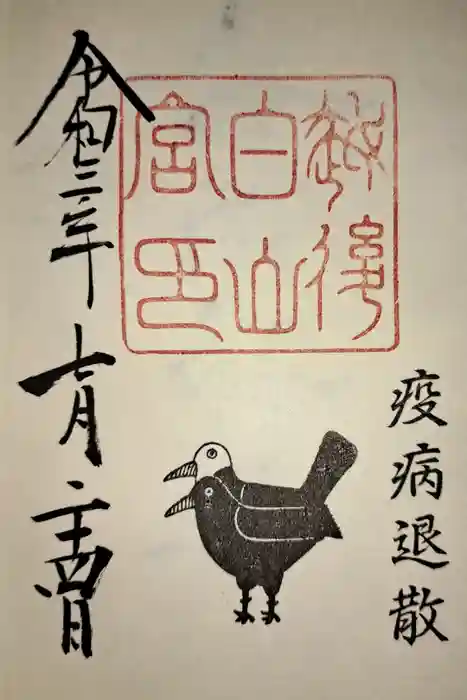 疫病退散
越後
白山
宮印
令和三年
七月
二十四日